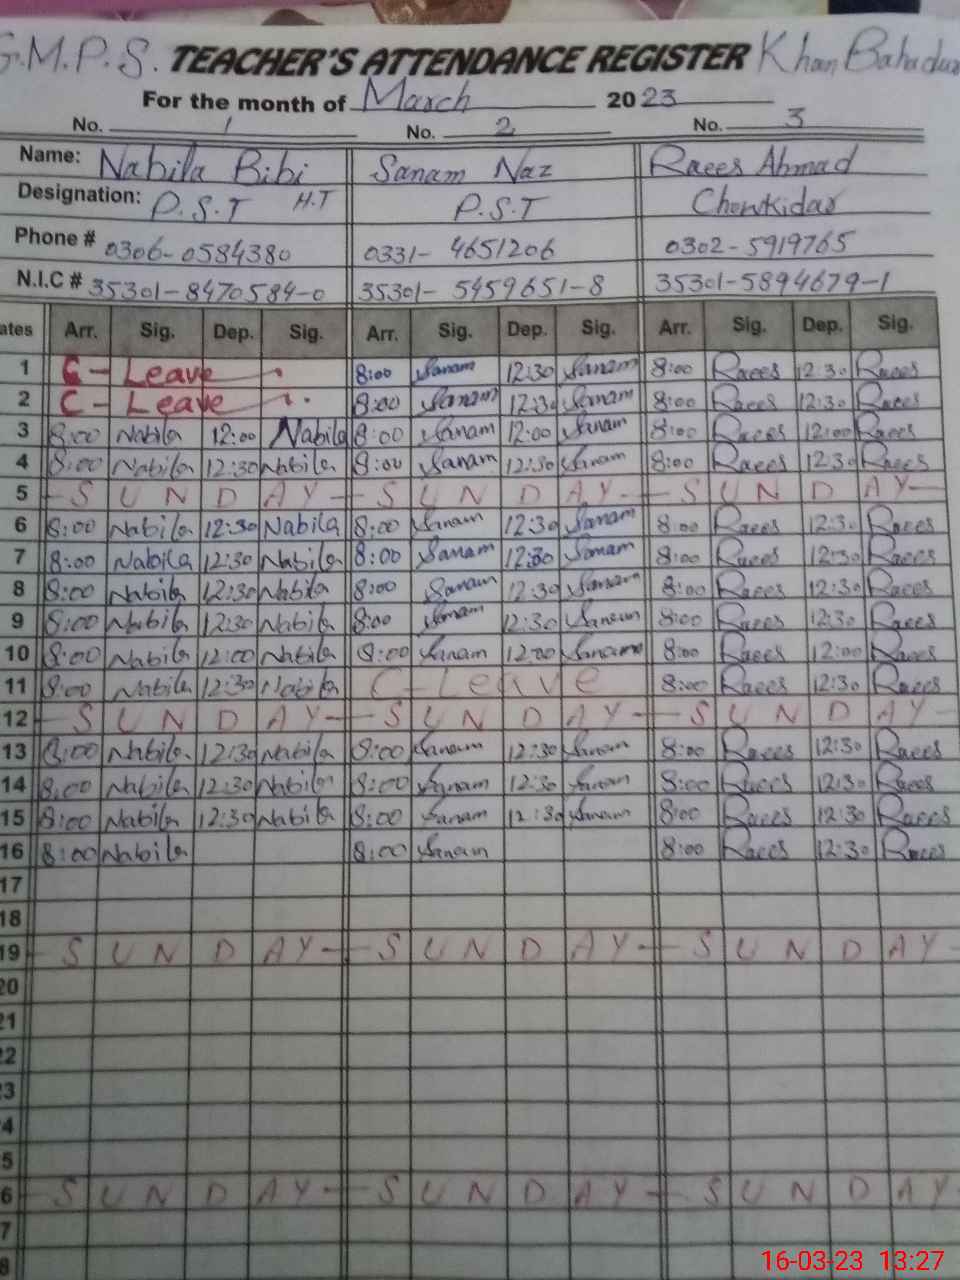 G.M.P.S. TEACHER'S ATTENDANCE REGISTER Khan Bahadur
For the month of March 2023
No. 1 No. 2 No. 3
Name: Nabila Bibi Sanam Naz Raees Ahmad
Designation: P.S.T H.T P.S.T Chowkidar
Phone # 0306-0584380 0331-4651206 0302-5919765
N.I.C # 35301-8470584-0 35301-5459651-8 35301-5894679-1
ates Arr. Sig. Dep. Sig. Arr. Sig. Dep. Sig. Arr. Sig. Dep. Sig.
1 C-Leave 8:00 Sanam 12:30 Sanam 8:00 Raees 12:30 Raees
2 C-Leave 8:00 Sanam 12:30 Sanam 8:00 Raees 12:30 Raees
3 8:00 Nabila 12:00 Nabila 8:00 Sanam 12:00 Sanam 8:00 Raees 12:00 Raees
4 8:00 Nabila 12:30 Nabila 8:00 Sanam 12:30 Sanam 8:00 Raees 12:30 Raees
5 - S U N D A Y - - S U N D A Y - - S U N D A Y -
6 8:00 Nabila 12:30 Nabila 8:00 Sanam 12:30 Sanam 8:00 Raees 12:30 Raees
7 8:00 Nabila 12:30 Nabila 8:00 Sanam 12:30 Sanam 8:00 Raees 12:30 Raees
8 8:00 Nabila 12:30 Nabila 8:00 Sanam 12:30 Sanam 8:00 Raees 12:30 Raees
9 8:00 Nabila 12:30 Nabila 8:00 Sanam 12:30 Sanam 8:00 Raees 12:30 Raees
10 8:00 Nabila 12:00 Nabila 8:00 Sanam 12:00 Sanam 8:00 Raees 12:00 Raees
11 8:00 Nabila 12:30 Nabila C-Leave 8:00 Raees 12:30 Raees
12 - S U N D A Y - - S U N D A Y - - S U N D A Y -
13 8:00 Nabila 12:30 Nabila 8:00 Sanam 12:30 Sanam 8:00 Raees 12:30 Raees
14 8:00 Nabila 12:30 Nabila 8:00 Sanam 12:30 Sanam 8:00 Raees 12:30 Raees
15 8:00 Nabila 12:30 Nabila 8:00 Sanam 12:30 Sanam 8:00 Raees 12:30 Raees
16 8:00 Nabila 8:00 Sanam 8:00 Raees 12:30 Raees
17
18
19 - S U N D A Y - - S U N D A Y - - S U N D A Y
20
21
22
3
4
5
6 - S U N D A Y - - S U N D A Y - - S U N D A Y
7
8
16-03-23 13:27